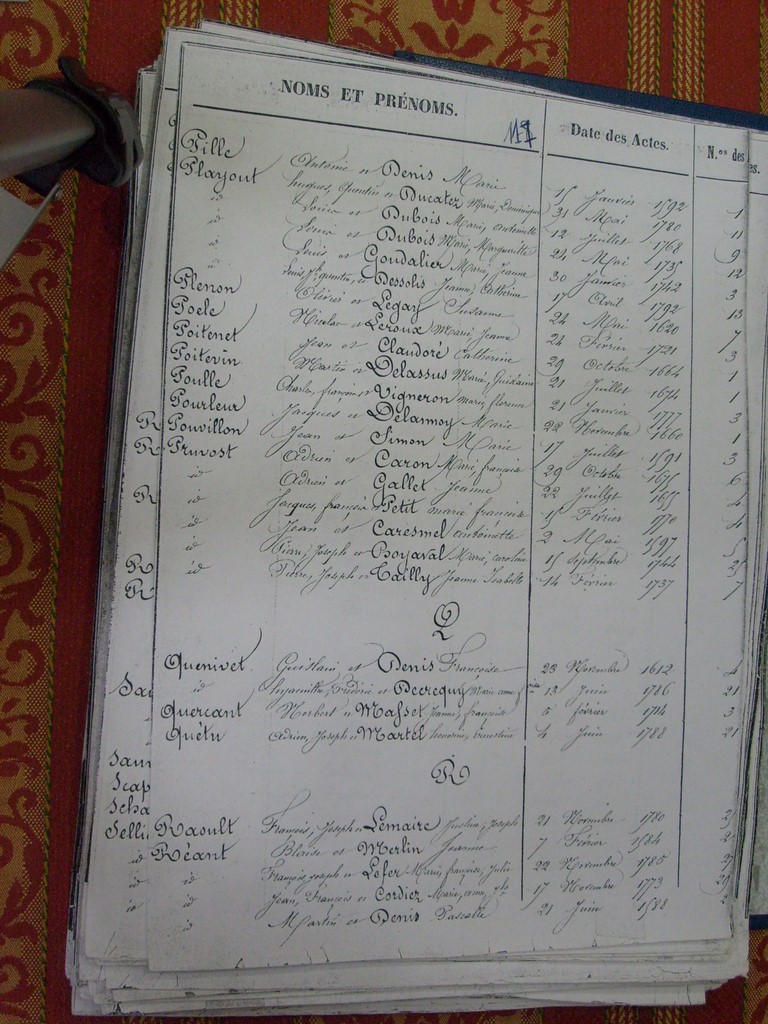 NOMS ET PRÉNOMS. Date des Actes. N.os des
Pille Antoine et Denis Marie 15 Janvier 1592 1
Playout Jacques, Quentin et Ducatez Marie, Dominique 31 Mai 1780 11
id Louis et Dubois Marie, antoinette 12 Juillet 1768 9
id Louis et Dubois Marie, Marguerite 24 Mai 1735 12
id Louis et Goudalier Marie, Jeanne 30 Janvier 1742 3
id Louis, Jh quentin, et Dessolis Jeanne, Catherine 17 Avril 1792 13
Plenon Olivier et Legay Susanne 24 Mai 1620 7
Poele Nicolas et Leroux Marie Jeanne 24 Février 1721 3
Poitenet Jean et Claudoré Catherine 29 Octobre 1664
Poitevin Martin et Delassus Marie, Guislaine 21 Juillet 1674 1
Poulle Charles, françois et Vigneron marie, florence 21 Janvier 1777 3
Pourleur Jacques et Delannoy Marie 22 Novembre 1660 1
Pouvillon Jean et Simon Marie 17 Juillet 1591 3
Pruvost Adrien et Caron Marie, françoise 29 Octobre 1675 6
id Adrien et Gallet Jeanne 22 Juillet 1675 4
id Jacques, françois et Petit marie françoise 15 Février 1770 4
id Jean et Caresmel antoinette 2 Mai 1597 5
id Pierre, Joseph et Boyaval Marie, caroline 15 Septembre 1744 25
id Pierre, Joseph et Tailly Jeanne Isabelle 14 Février 1737 7
Q
Quenivet Guislain et Denis Françoise 23 Novembre 1612 4
id hyacinthe, Frédéric et Decrequy Marie anne 13 Juin 1786 21
Quercant Norbert et Masset Jeanne, françoise 5 février 1714 3
Quétu Adrien, Joseph et Martel honorine, ernestine 4 Juin 1788 21
R
Raoult François, Joseph et Lemaire Justine, Joseph 21 Novembre 1780
Réant Blaise et Merlin Jeanne 7 Février 1584
id François joseph et Lefer Marie, françoise, Julie 22 Novembre 1785
id Jean, François et Cordiez Marie, anne, jh 17 Novembre 1773
id Martin et Denis Pascalle 21 Juin 1588